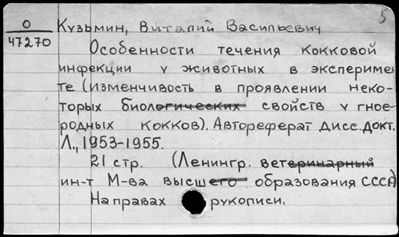 5
О
47270
Кузьмин, Виталий Васильевич
Особенности течения кокковой
инфекции у животных в эксперимен
те (изменчивость в проявлении неко-
торых биологических свойств у гное-
родных кокков). Автореферат дисс. докт.
Л., 1953-1955.
21 стр. (Ленингр. ветеринарный
ин-т М-ва высшего образования СССР)
На правах рукописи.